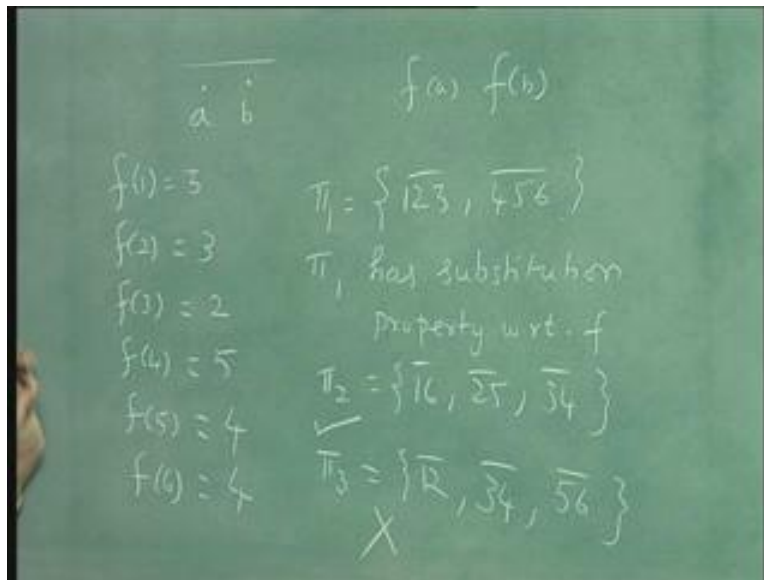 a b
f(a) f(b)
f(1) = 3
f(2) = 3
f(3) = 2
f(4) = 5
f(5) = 4
f(6) = 4
π₁ = { 123, 456 }
π₁ has substitution
property w.r.t. f
π₂ = { 16, 25, 34 }
✓
π₃ = { 12, 34, 56 }
X